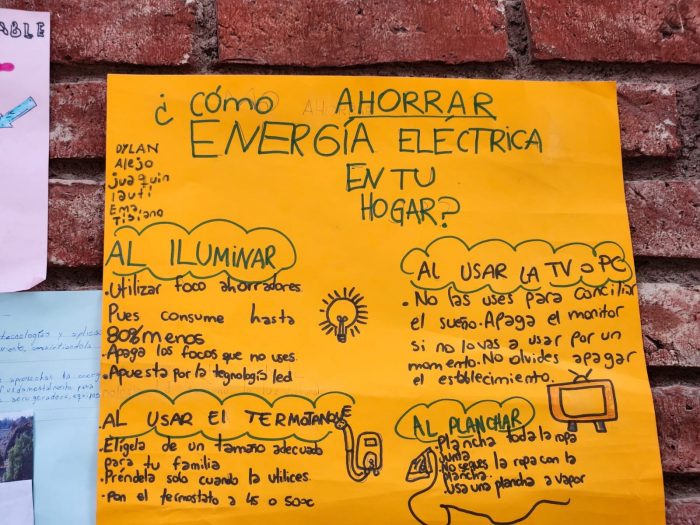 ABLE
¿ CÓMO AHORRAR
ENERGÍA ELÉCTRICA
EN TU
HOGAR?
DYLAN
Alejo
Juaquin
lauti
Ema
Tisiano
AL ILUMINAR
.Utilizar foco ahorradores
Pues consume hasta
80% menos
.Apaga los focos que no uses
.Apuesta por la tegnología led
AL USAR LA TV o PC
. No las uses para conciliar
el sueño.Apaga el monitor
si no lo vas a usar por un
momento.No olvides apagar
el establecimiento.
AL USAR El TERMOTANQUE
.Eligela de un tamaño adecuado
para tu familia
.Préndela solo cuando la utilices
.Pon el termostato a 45 o 50°c
AL PLANCHAR
Plancha toda la ropa
Junta
No seques la ropa con la
plancha.
.usa una plancha a vapor